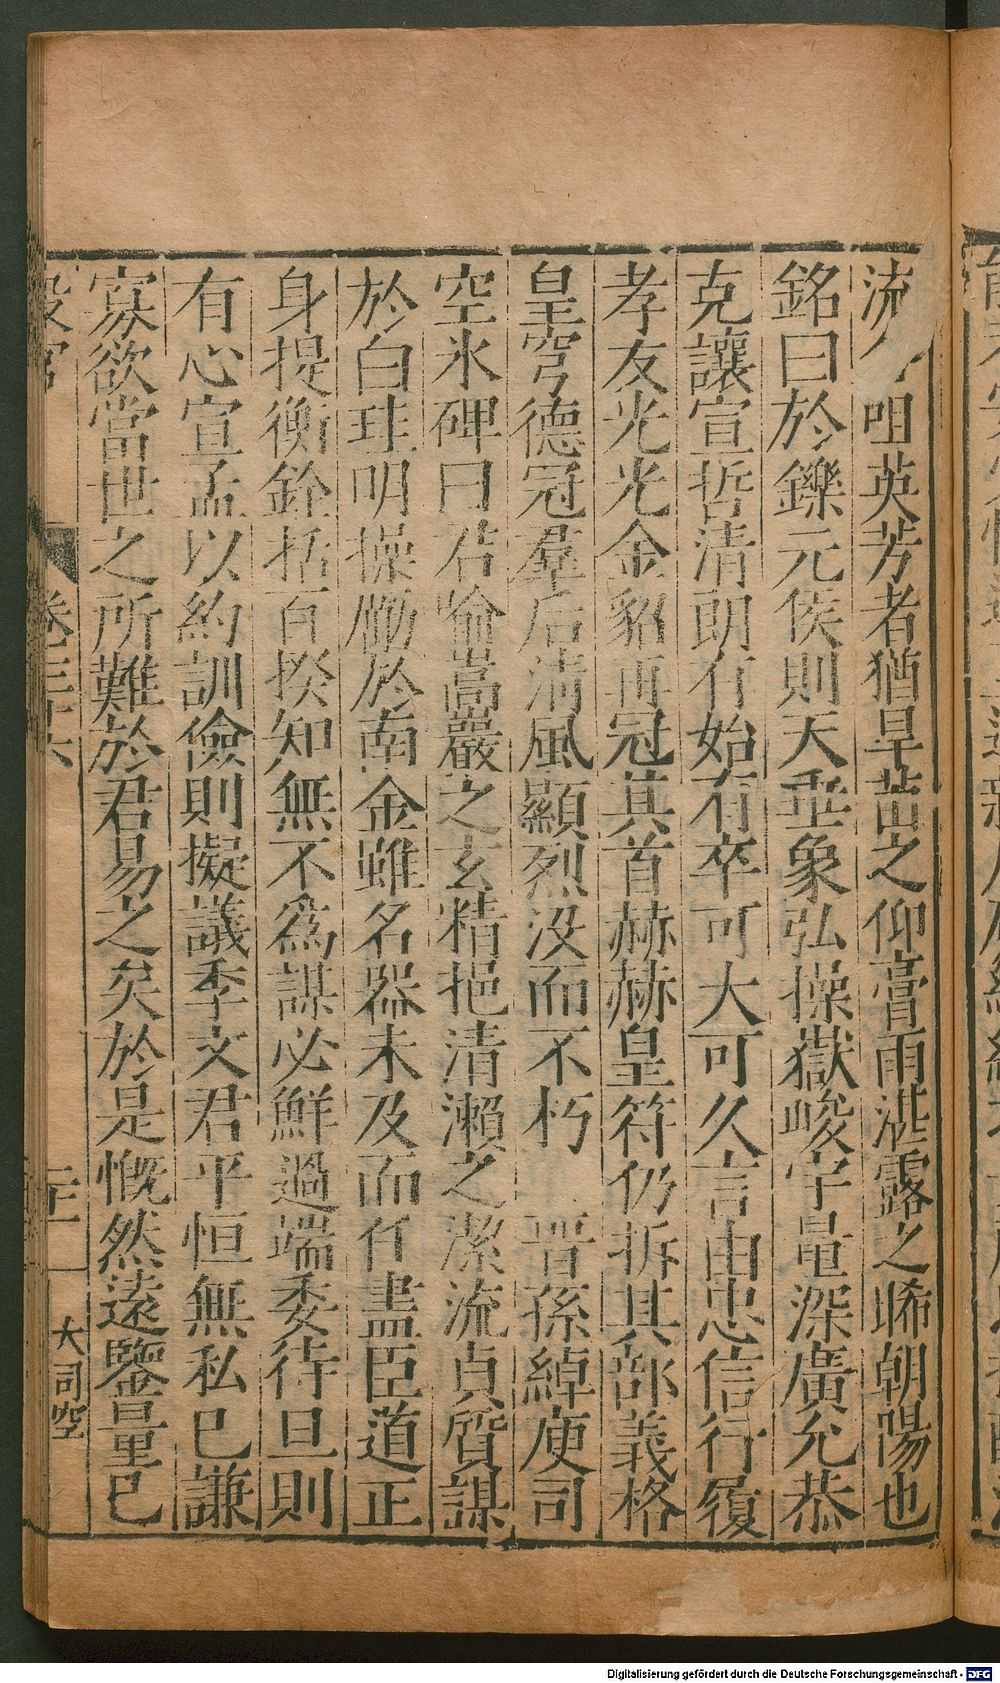 流 咀英芳者猶旱苗之仰膏雨湛露之晞朝陽也
銘曰於鑠元侯則天垂象弘操嶽峻宇量深廣允恭
克讓宣哲清朗有始有卒可大可久言由忠信行履
孝友光光金貂再冠其首赫赫皇符仍拆其部義格
皇穹德冠羣后清風顯烈沒而不朽　晉孫綽庾司
空氷碑曰君喻嵩巖之玄精挹清瀨之潔流貞質謀
於白珪明操勵於南金雖名器未及而任盡臣道正
身提衡銓括百揆知無不爲謀必鮮過端委待旦則
有心宣孟以約訓儉則擬議季文君平恒無私已謙
寡欲當世之所難於君易之矣於是慨然遠鑒量已
卷三十六
二十一
大司空
Digitalisierung gefördert durch die Deutsche Forschungsgemeinschaft - DFG